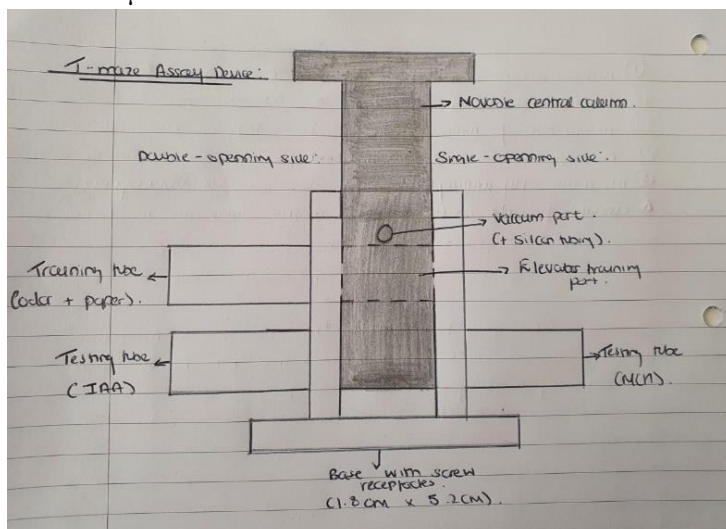 T-maze Assay Device:
Movable central column.
Double-openning side:
Single-openning side:
Vacuum port.
(+ Silicon tubing).
Training tube
(odor + paper).
Elevator training
port.
Testing tube
(IAA)
Testing tube
(MCH).
Base with screw
receptacles.
(1.8cm x 5.2cm).